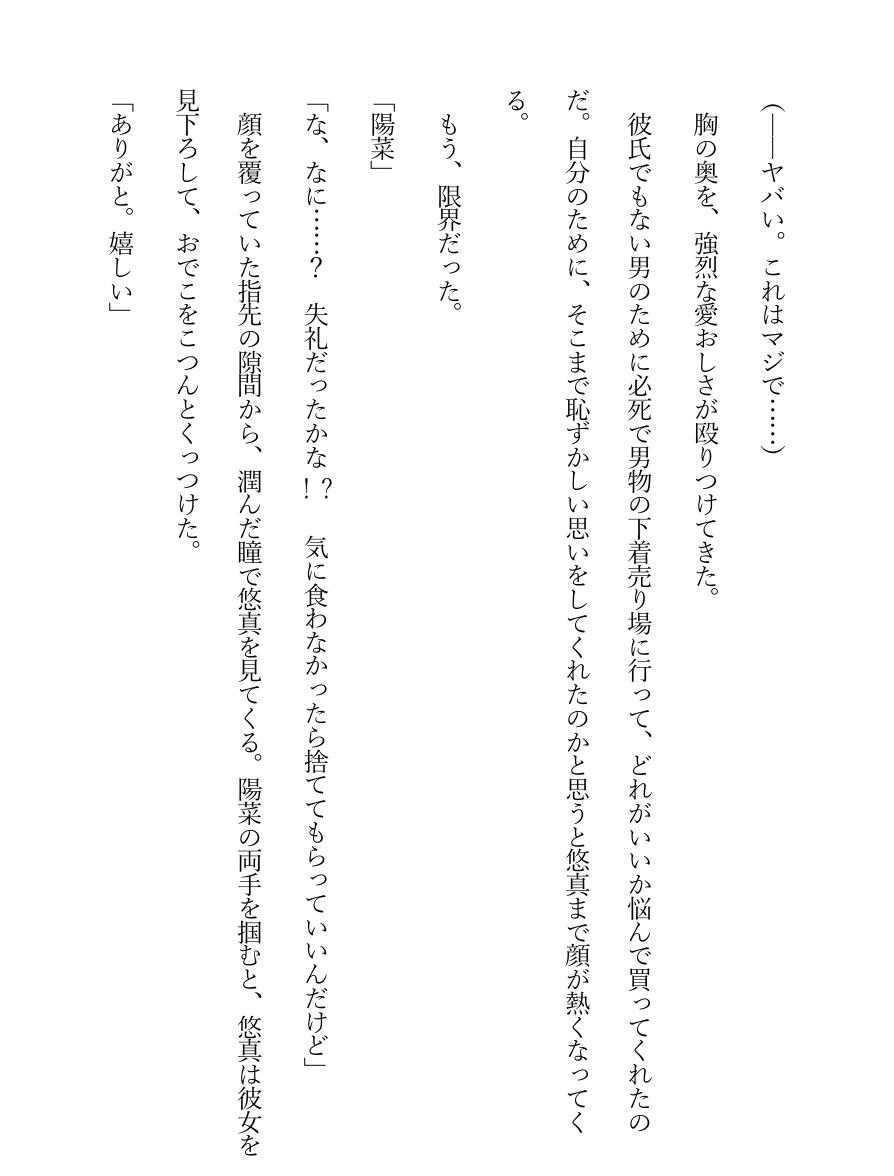 （――ヤバい。これはマジで……）
　胸の奥を、強烈な愛おしさが殴りつけてきた。
　彼氏でもない男のために必死で男物の下着売り場に行って、どれがいいか悩んで買ってくれたの
だ。自分のために、そこまで恥ずかしい思いをしてくれたのかと思うと悠真まで顔が熱くなってく
る。
　もう、限界だった。
「陽菜」
「な、なに……？　失礼だったかな！？　気に食わなかったら捨ててもらっていいんだけど」
　顔を覆っていた指先の隙間から、潤んだ瞳で悠真を見てくる。陽菜の両手を掴むと、悠真は彼女を
見下ろして、おでこをこつんとくっつけた。
「ありがと。嬉しい」